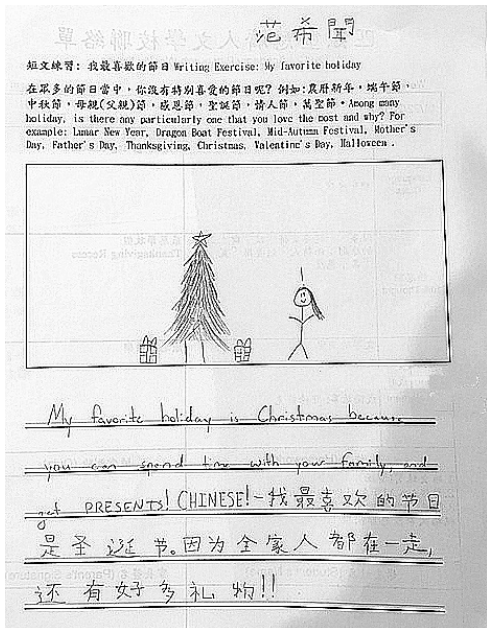 范希聞
短文練習: 我最喜歡的節日 Writing Exercise: My favorite holiday
在眾多的節日當中,你沒有特別喜愛的節日呢? 例如:農曆新年,端午節,
中秋節,母親(父親)節,感恩節,聖誕節,情人節,萬聖節。Among many
holiday, is there any particularly one that you love the most and why? For
example: Lunar New Year, Dragon Boat Festival, Mid-Autumn Festival, Mother's
Day, Father's Day, Thanksgiving, Christmas, Valentine's Day, Halloween .
My favorite holiday is Christmas because
you can spend time with your family, and
get PRESENTS! CHINESE!-我最喜欢的节日
是圣诞节。因为全家人都在一走,
还有好多礼物!!